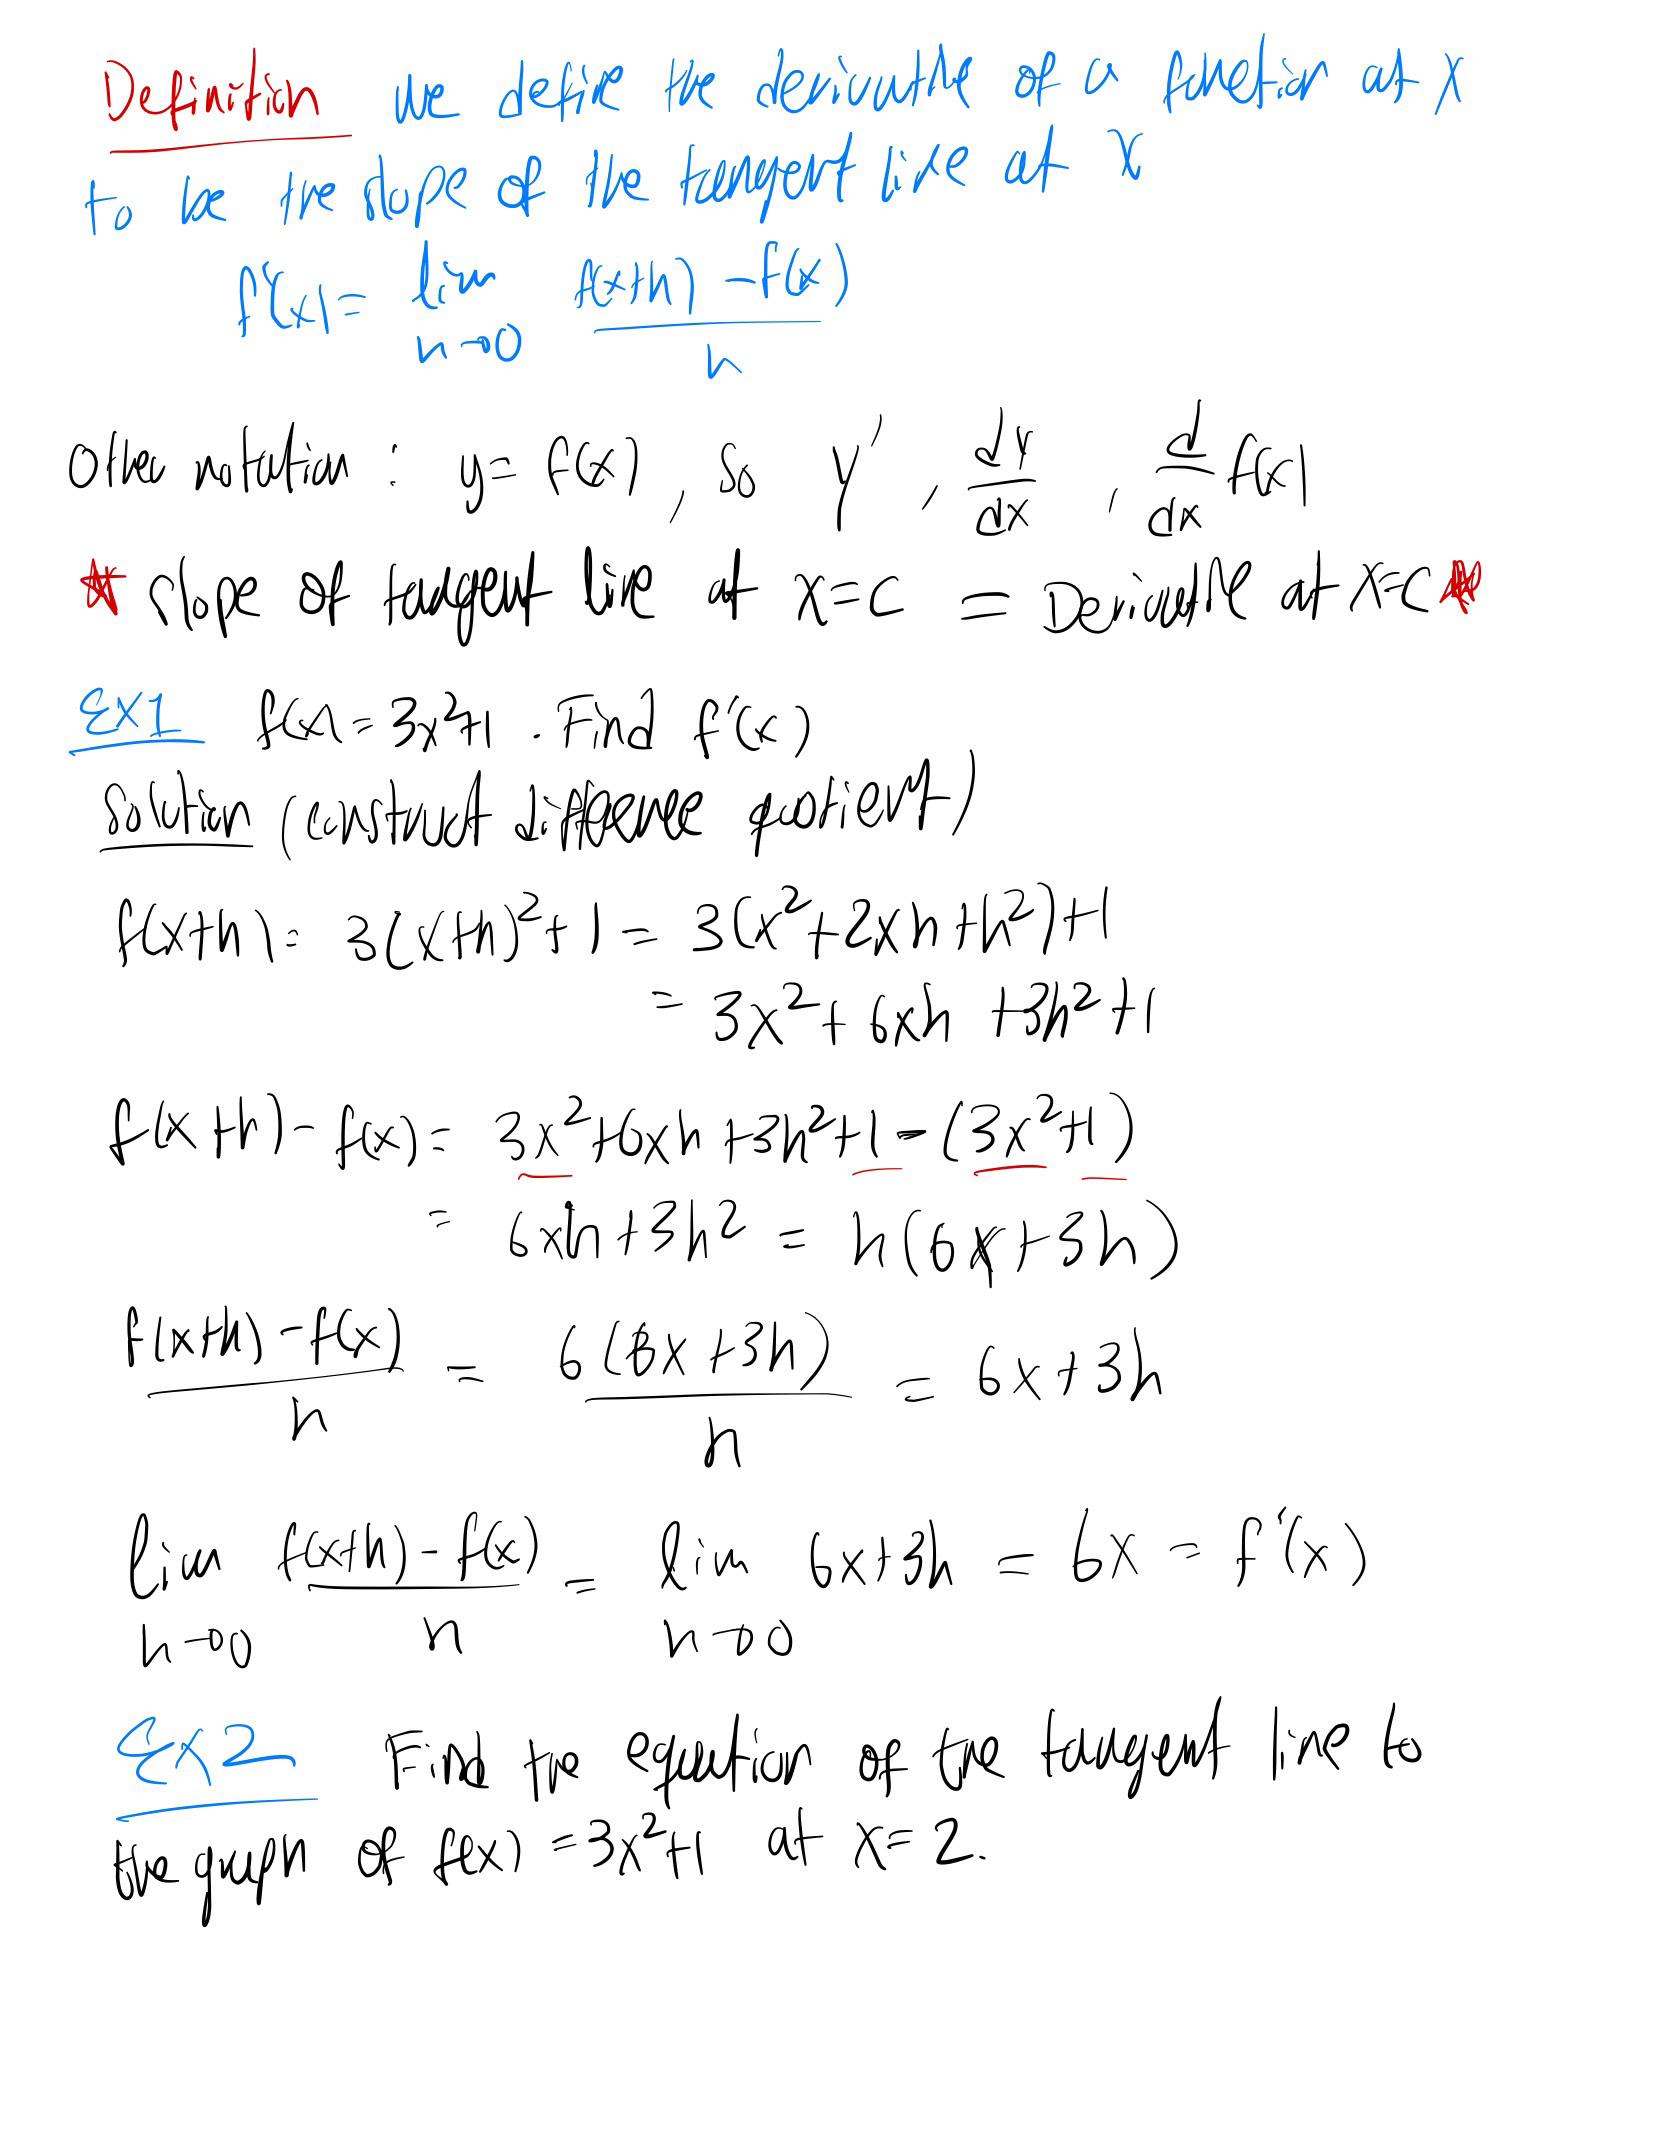 Definition We define the derivative of a function at x
to be the slope of the tangent line at x
f'(x) = lim f(x+h) - f(x)
h→0 h
Other notation : y = f(x), so y' , dy/dx , d/dx f(x)
☆ slope of tangent line at x=c = Derivative at x=c ☆
EX1 f(x) = 3x²+1 . Find f'(x)
Solution (construct difference quotient)
f(x+h) = 3(x+h)² + 1 = 3(x²+2xh+h²)+1
= 3x² + 6xh +3h² +1
f(x+h) - f(x) = 3x²+6xh+3h²+1 - (3x²+1)
= 6xh+3h² = h(6x+3h)
f(x+h) - f(x) = 6(6x+3h) = 6x+3h
h h
lim f(x+h) - f(x) = lim 6x+3h = 6x = f'(x)
h→0 h h→0
EX2 Find the equation of the tangent line to
the graph of f(x) = 3x²+1 at x=2.